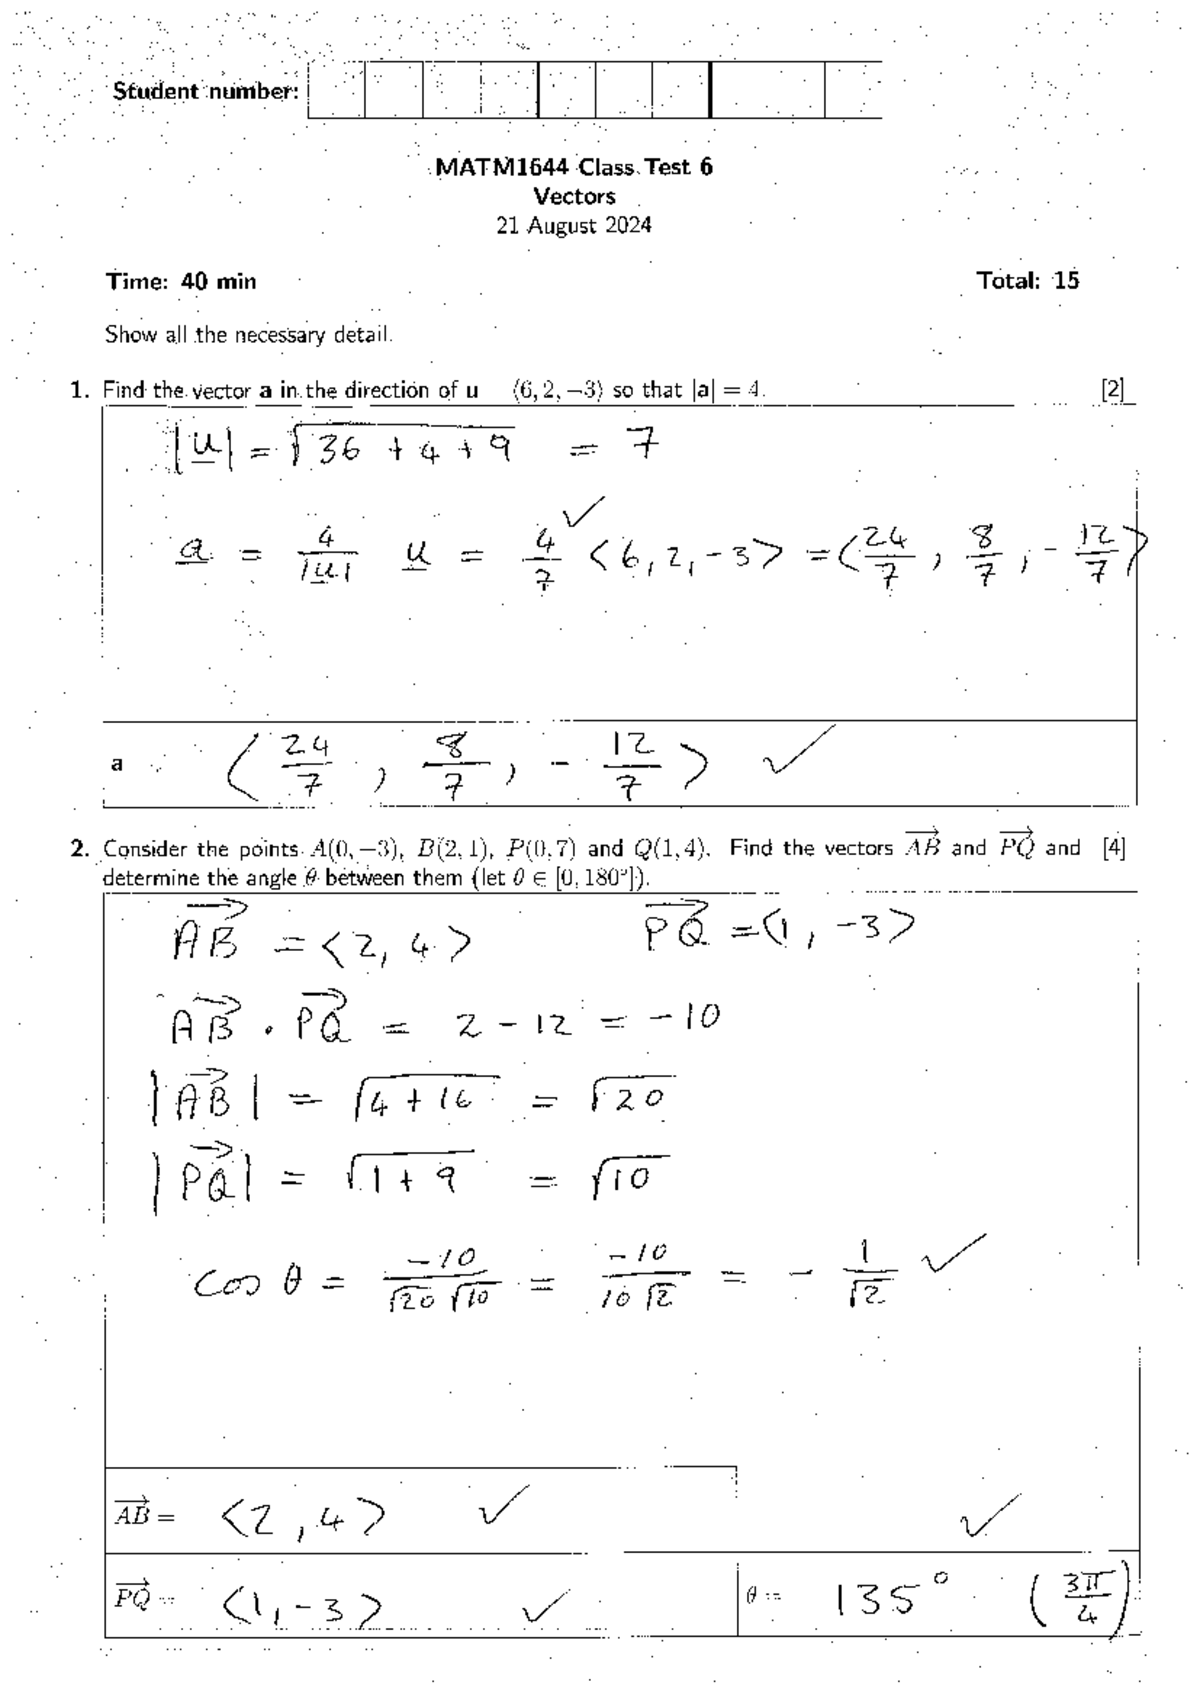 Student number:
MATM1644 Class Test 6
Vectors
21 August 2024
Time: 40 min Total: 15
Show all the necessary detail.
1. Find the vector a in the direction of u (6, 2, −3) so that |a| = 4. [2]
|u| = √(36 + 4 + 9) = 7
a = 4/|u| u = 4/7 ⟨6, 2, -3⟩ = ⟨24/7, 8/7, -12/7⟩ ✓
a ⟨24/7, 8/7, -12/7⟩ ✓
2. Consider the points A(0, −3), B(2, 1), P(0, 7) and Q(1, 4). Find the vectors →AB and →PQ and [4]
determine the angle θ between them (let θ ∈ [0, 180°]).
→AB = ⟨2, 4⟩ →PQ = ⟨1, -3⟩
→AB · →PQ = 2 - 12 = -10
|→AB| = √(4 + 16) = √20
|→PQ| = √(1 + 9) = √10
cos θ = -10/(√20 √10) = -10/(10 √2) = - 1/√2 ✓
→AB = ⟨2, 4⟩ ✓ ✓
→PQ = ⟨1, -3⟩ ✓ θ = 135° (3π/4)